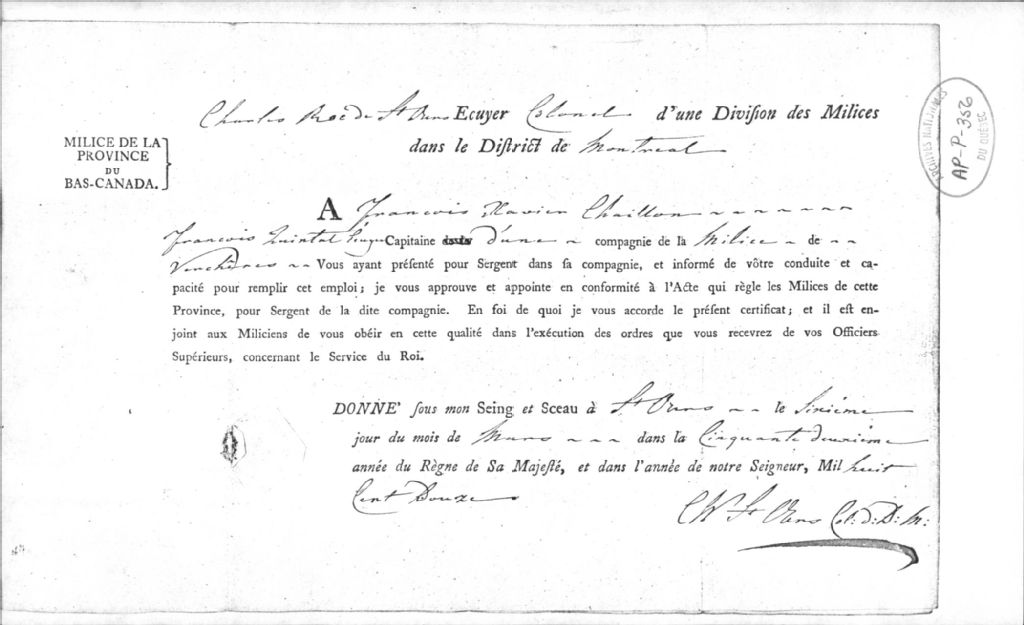 Charles Roc de St Ours Ecuyer Colonel d'une Diviſion des Milices
dans le Diſtrict de Montreal
MILICE DE LA
PROVINCE
DU
BAS-CANADA.
A François Xavier Chaillon
François Quintal Ecuyer Capitaine d'une compagnie de la Milice de
Verchères Vous ayant préſenté pour Sergent dans ſa compagnie, et informé de vôtre conduite et ca-
pacité pour remplir cet emploi; je vous approuve et appointe en conformité à l'Acte qui règle les Milices de cette
Province, pour Sergent de la dite compagnie. En foi de quoi je vous accorde le préſent certificat; et il eſt en-
joint aux Miliciens de vous obéir en cette qualité dans l'exécution des ordres que vous recevrez de vos Officiers
Supérieurs, concernant le Service du Roi.
DONNE' ſous mon Seing et Sceau à St Ours le Sixiéme
jour du mois de Mars dans la Cinquante deuxiéme
année du Règne de Sa Majeſté, et dans l'année de notre Seigneur, Mil huit
Cent Douze
Ch St Ours Col: d: D: M:
ARCHIVES NATIONALES
AP-P-356
DU QUÉBEC